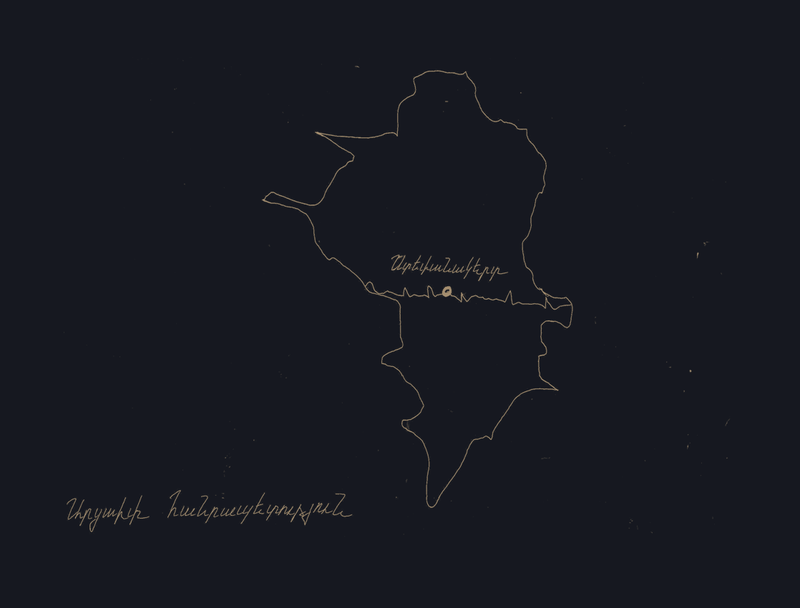 Ստեփանակերտ
Արցախի Հանրապետություն